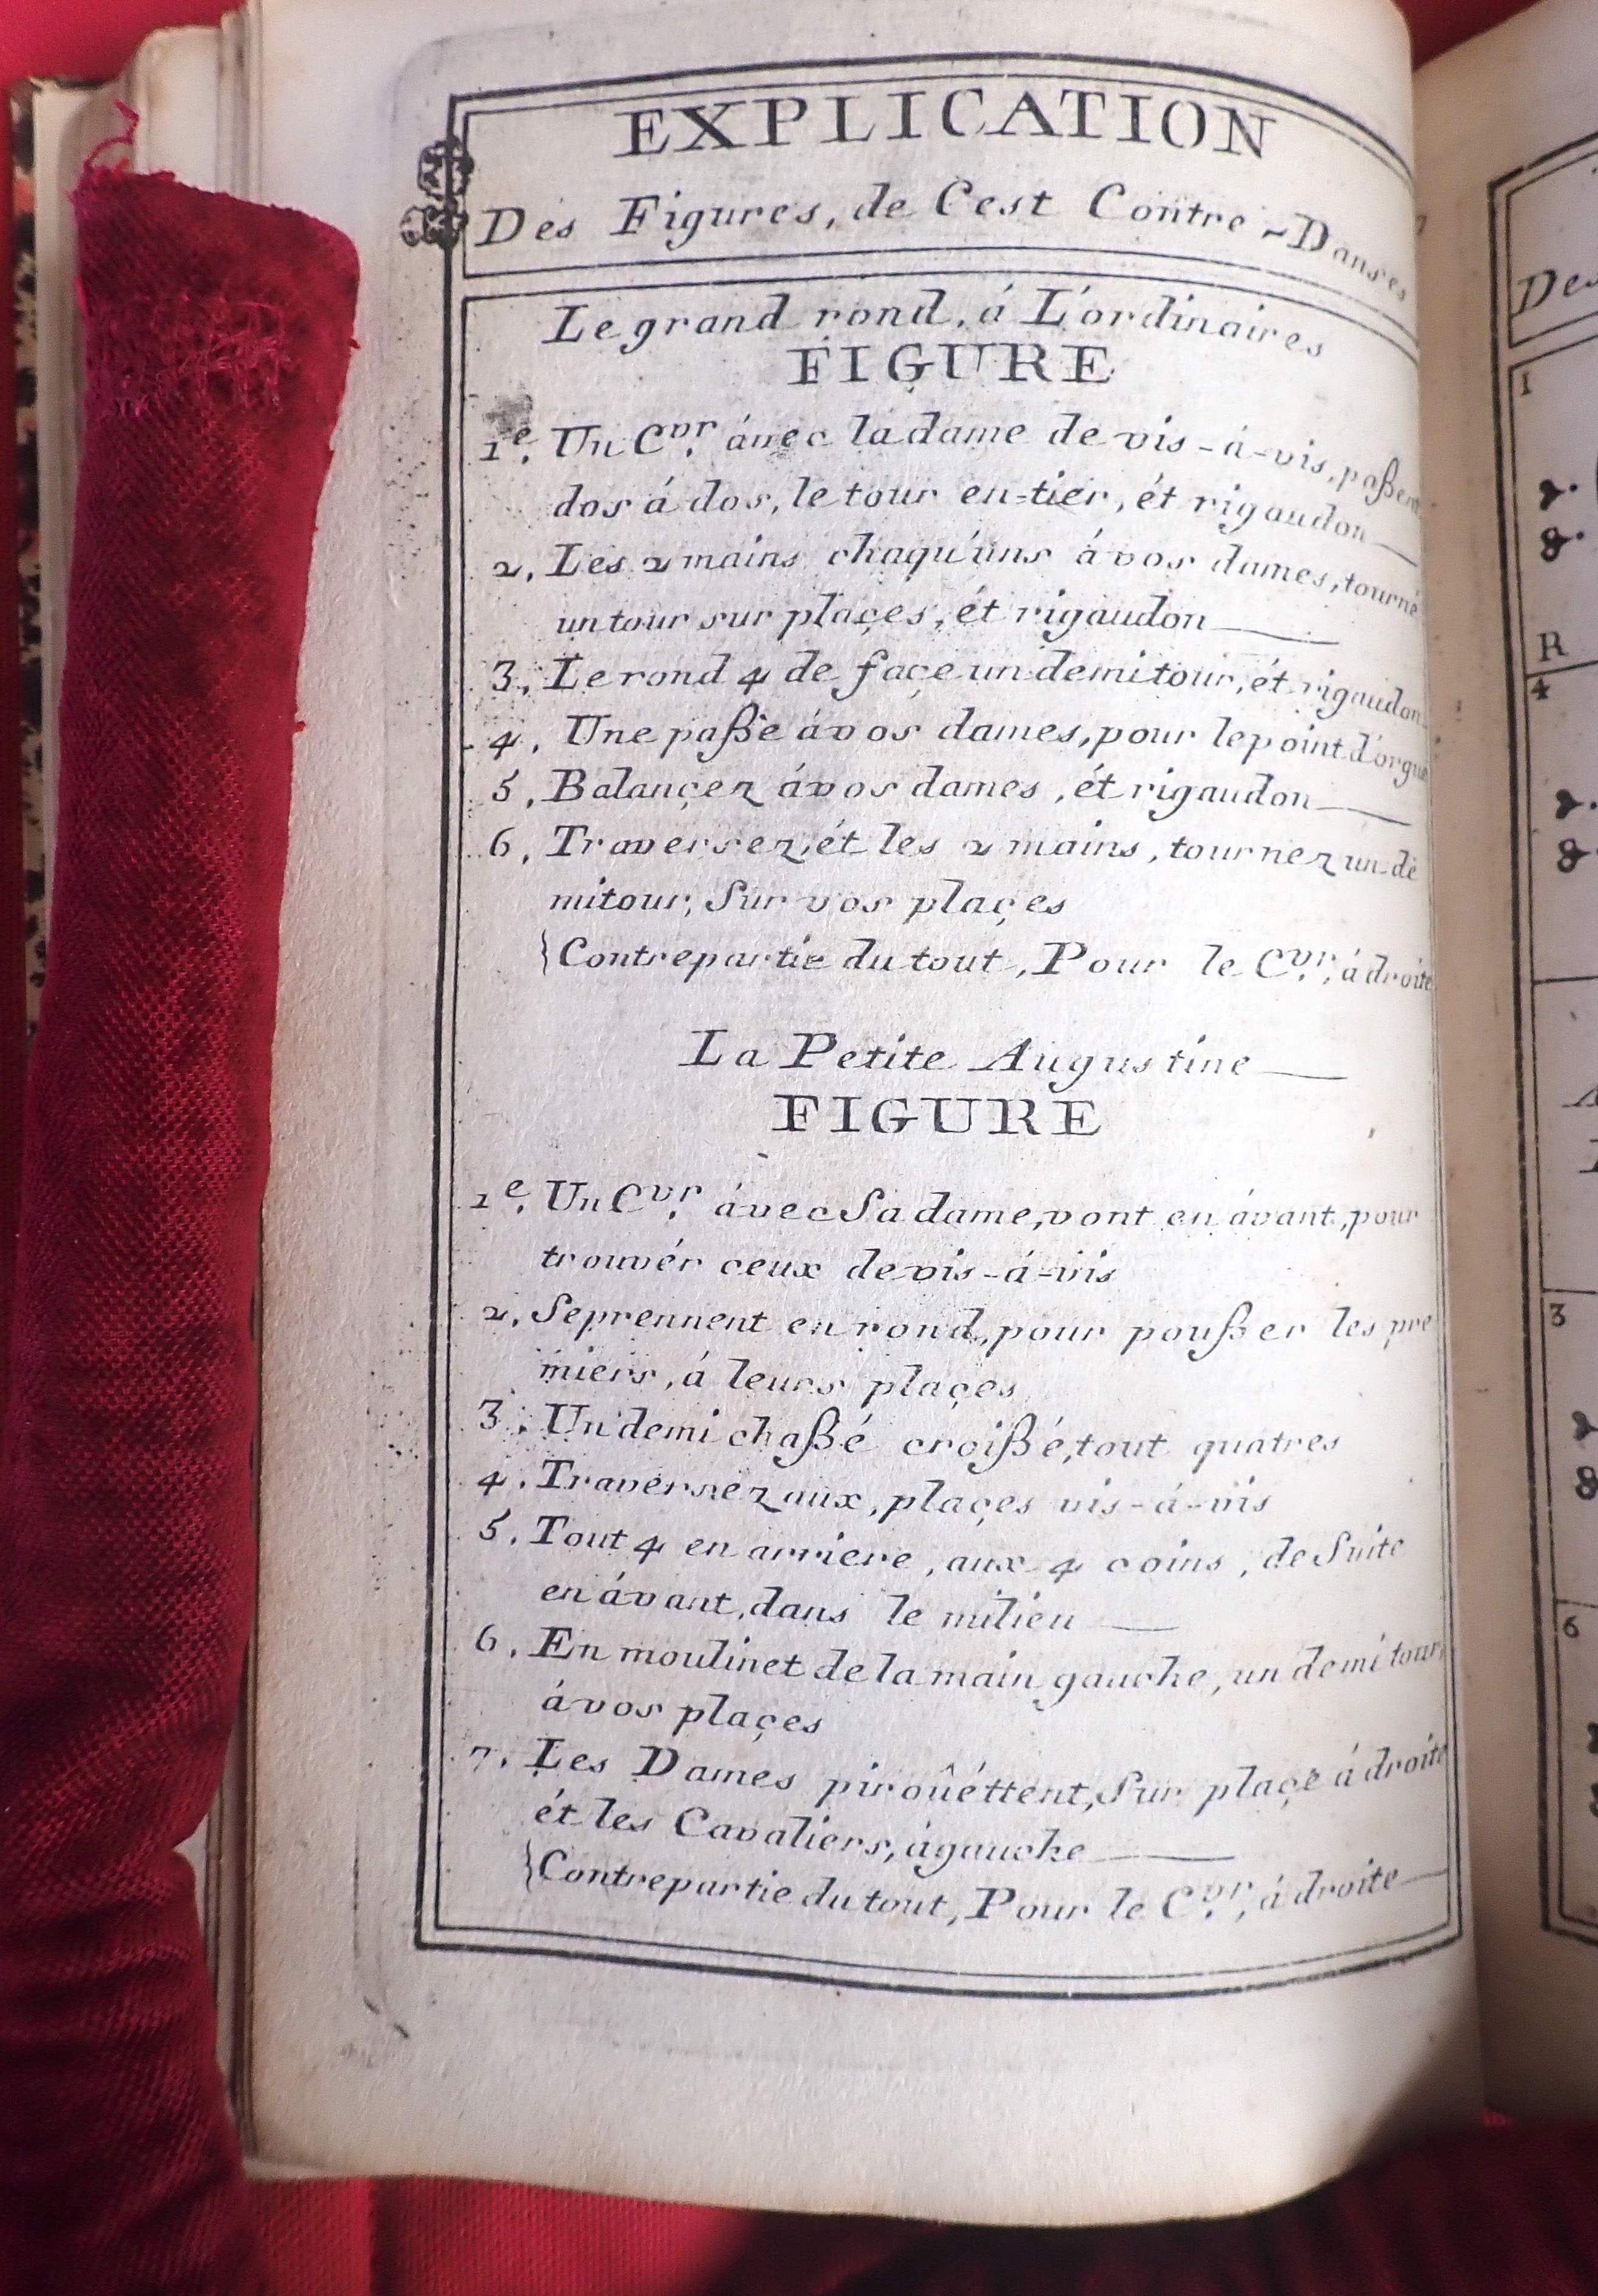 EXPLICATION
Des Figures, de Cest Contre-Danses
Le grand rond, á L'ordinaires
FIGURE
1e. Un Cvr. ávec la dame de vis-á-vis, paßent
dos á dos, le tour en-tier, ét rigaudon
2, Les 2 mains chaqu'uns á vos dames, tourné
un tour sur plaçes, ét rigaudon
3, Le rond 4 de façe un demi tour, ét rigaudon
4, Une paßée á vos dames, pour le point d'orgue
5, Balançez á vos dames, ét rigaudon
6, Traversez, ét les 2 mains, tournez un de
mi tour, Sur vos plaçes
Contrepartie du tout, Pour le Cvr., á droite
La Petite Augustine
FIGURE
1e. Un Cvr. ávec Sa dame, vont en ávant, pour
trouvér ceux de vis-á-vis
2, Se prennent en rond, pour poußer les pre
miers, á leurs plaçes
3, Un demi chaßé croißé, tout quatres
4, Traversez aux, plaçes vis-á-vis
5, Tout 4 en arriere, aux 4 coins, de Suite
en ávant, dans le milieu
6, En moulinet de la main gauche, un demi tour,
á vos plaçes
7, Les Dames piroûéttent, Sur plaçe á droite
ét les Cavaliers, á gauche
Contrepartie du tout, Pour le Cvr., á droite
Des
1
R
4
3
6